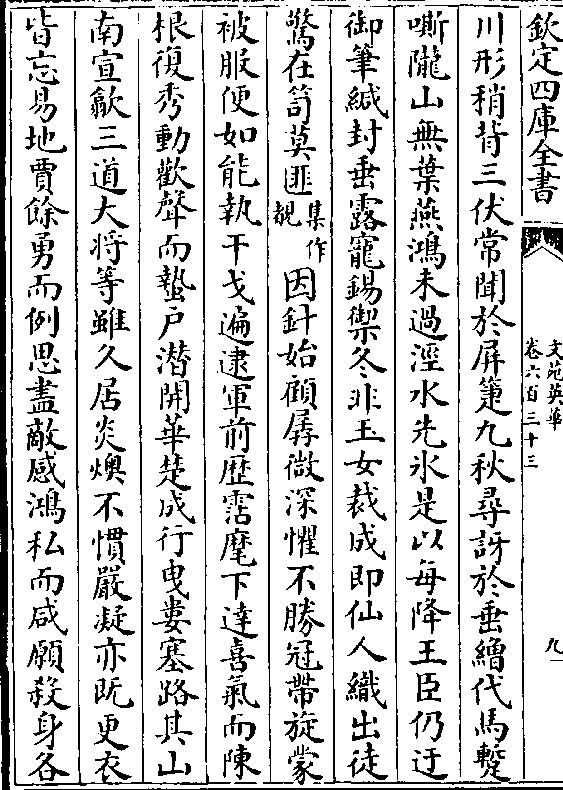 欽定四庫全書
文苑英華
卷六百三十三
九
川形稍背三伏常聞於屏箑九秋尋訝於垂繒代馬蹔
嘶隴山無葉燕鴻未過涇水先氷是以每降王臣仍迂
御筆緘封垂露寵錫禦冬非玉女裁成即仙人織出徒
驚在笥莫匪
集作
覩
因針始顧孱微深懼不勝冠帶旋蒙
被服便如能執干戈遍逮軍前歴霑麾下達喜氣而陳
根復秀動歡聲而蟄户潛開華楚成行曳婁塞路其山
南宣歙三道大將等雖久居炎燠不慣嚴凝亦既更衣
皆忘易地賈餘勇而例思盡敵感鴻私而咸願殺身各